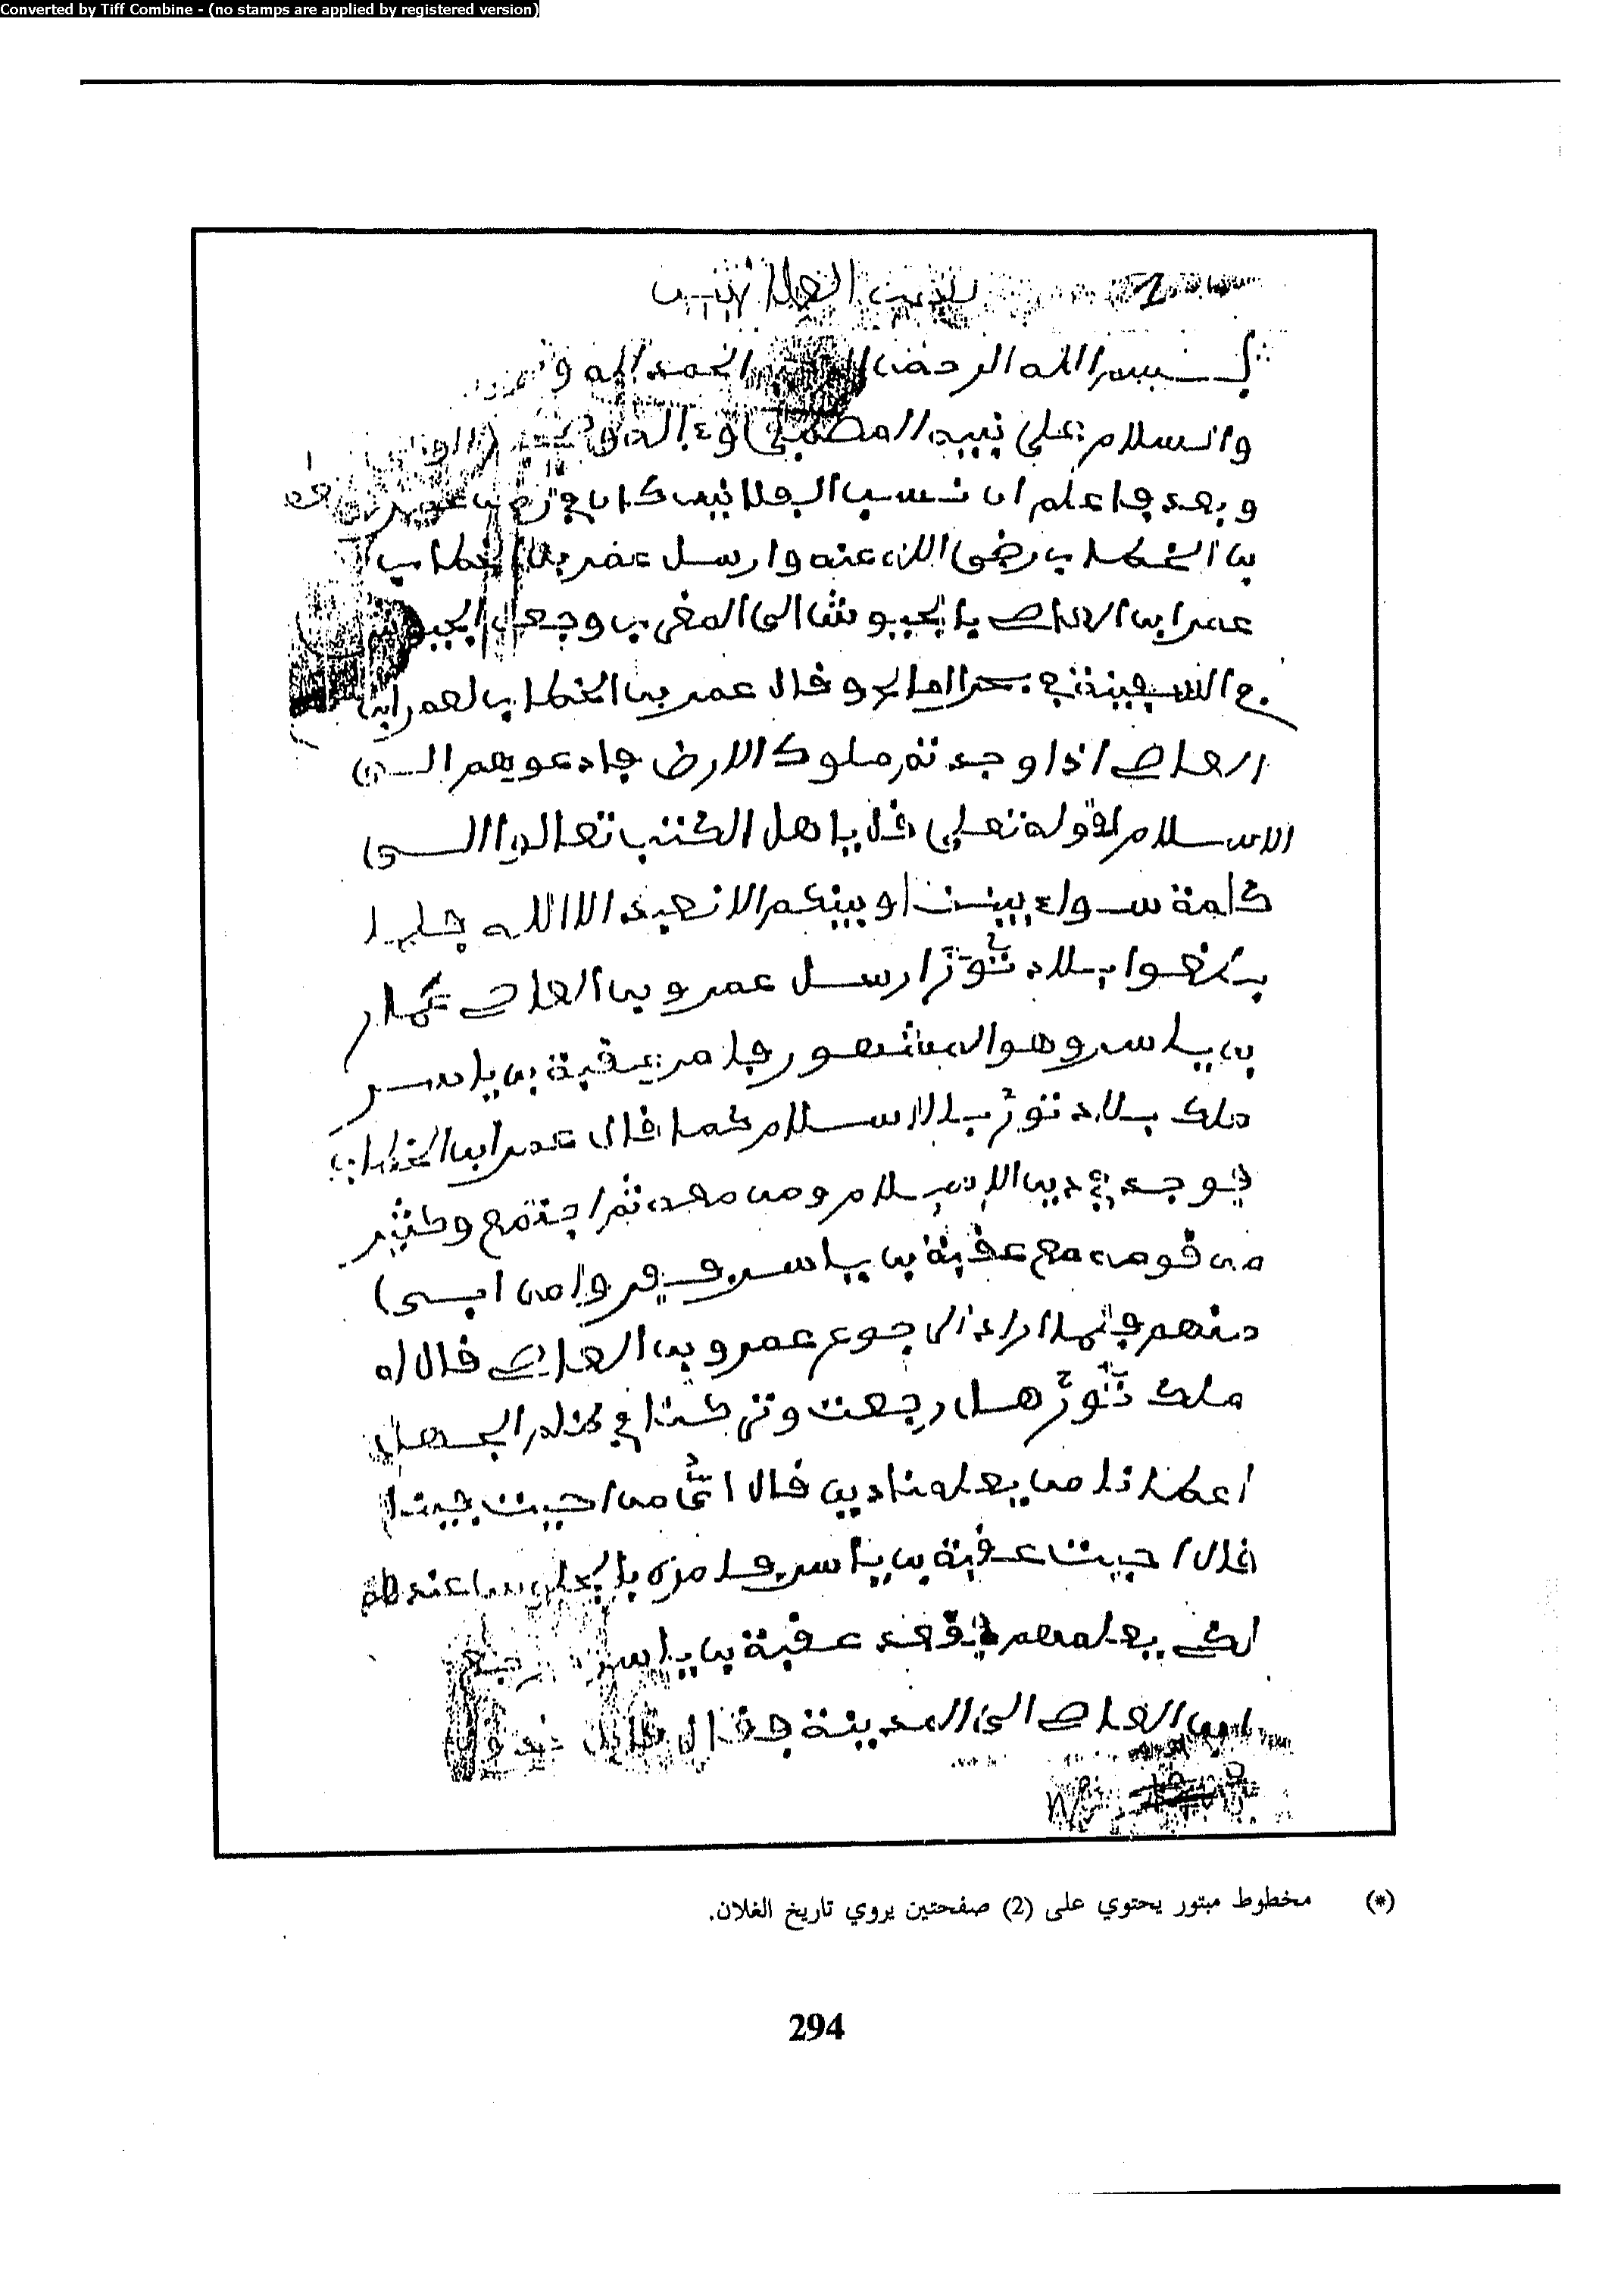 Converted by Tiff Combine - (no stamps are applied by registered version)
بسم الله الرحمن الحمد لله و
والسلام على نبيه المصطفى وءاله و
وبعد فاعلم ان نسب الفلانيين كان في زمن عمر
بن الخطاب رضي الله عنه وارسل عمر بن الخطاب
عمر ابن العاص بالجيوش الى المغرب وجعل الجيوش
في السفينة في بحر المالح وقال عمر بن الخطاب لعمر ابن
العاص اذا وجدتم ملوك الارض فادعوهم الى
الاسلام لقوله تعلى قل ياهل الكتب تعالوا الى
كلمة سواء بيننا وبينكم الا نعبد الا الله فلما
بلغوا بلاد تورّ ارسل عمرو بن العاص عمار
بن ياسر وهو المشهور فامر عقبة بن ياسر
ملك بلاد تور بالاسلام كما قال عمر ابن الخطاب
فوجد في دين الاسلام ومن معه ثم اجتمع وكثير
من قومه مع عقبة بن ياسر وفروا من ابى
منهم فلما اراد الرجوع عمرو بن العاص قال له
ملك تورّ هل رجعت وتركتنا في ظلم الجهل
اعطنا من يعلمنا دين قال اي من احببت فينا
قال احببت عقبة بن ياسر فامره بالجلوس عندهم
لكي يعلمهم فقعد عقبة بن ياسر رجع
ابن العاص الى المدينة فقال
(*) مخطوط مبتور يحتوي على (2) صفحتين يروي تاريخ الفلان.
294